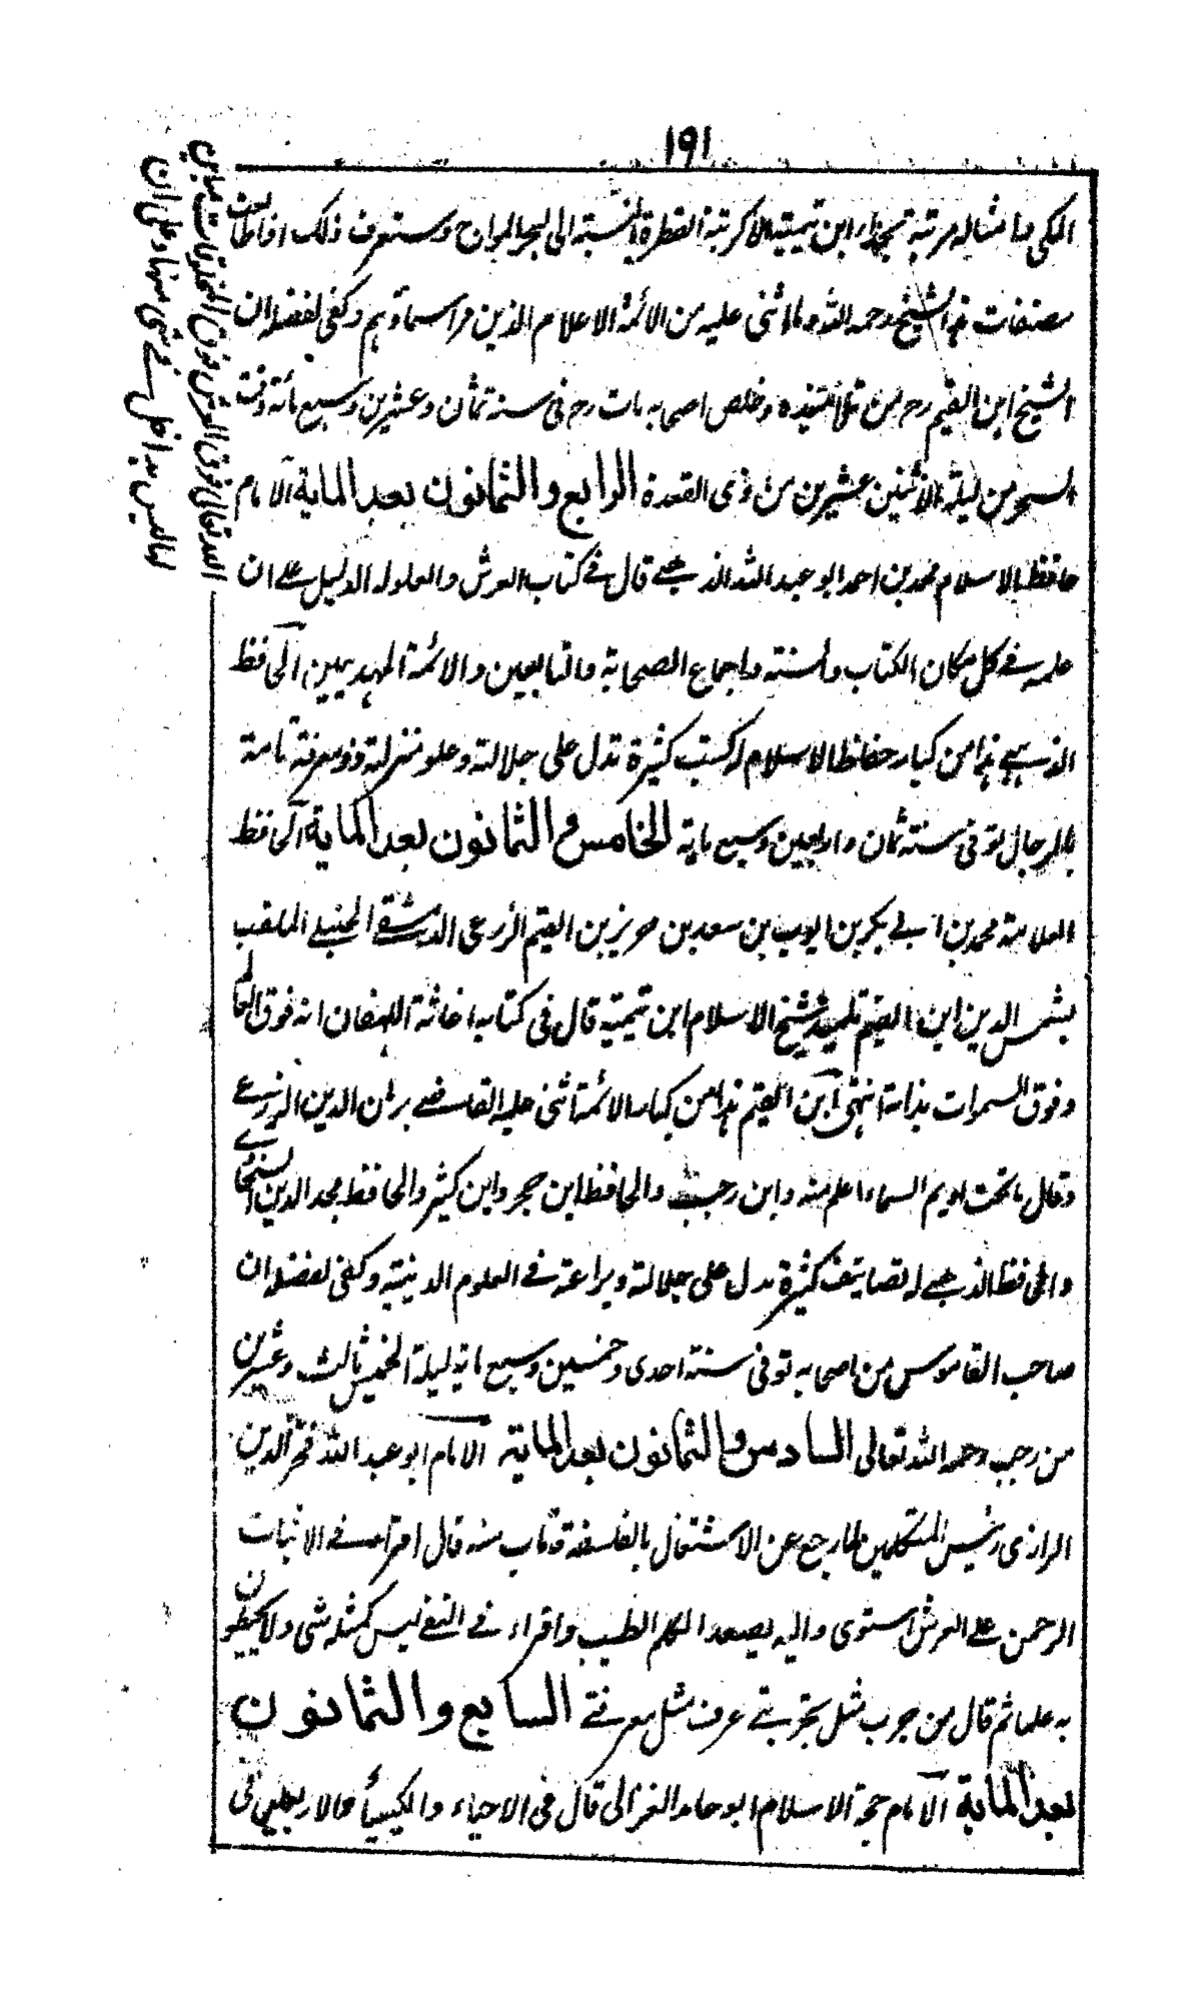 ١٩١
المكي وامثاله مرتبة تجذاء ابن تيمية الا كرتبة القطرة بالنسبة الى البحر المواج وستعرف ذلك اذا طالعت
مصنفات هذا الشيخ رحمه الله وما اثنى عليه من الائمة الاعلام الذين مر اسماؤهم وكفى لفضله ان
الشيخ ابن القيم رح من تلامذه وخلص اصحابه مات رح فى سنة ثمان وعشرين وسبع مائة وقت
السحر من ليلة الاثنين عشرين من ذى القعدة الرابع والثمانون بعد الماية الامام
حافظ الاسلام محمد بن احمد ابو عبد الله الذهبي قال في كتاب العرش والعلو له الدليل على ان
علمه في كل مكان الكتاب والسنته واجماع الصحابة والتابعين والائمة المهديين الحافظ
الذهبي هذا من كبار حفاظ الاسلام له كتب كثيرة تدل على جلالته وعلو منزلته وذو معرفة تامة
بالرجال توفى سنة ثمان واربعين وسبع ماية الخامس والثمانون بعد الماية الحافظ
العلامة محمد بن ابي بكر بن ايوب بن سعد بن حريز بن القيم الزرعى الدمشقي الحنبلي الملقب
بشمس الدين ابن القيم تلميذ شيخ الاسلام ابن تيمية قال فى كتابه اغاثة اللهفان انه فوق العالم
وفوق السموات بذاته انتهى ابن القيم هذا من كبار الائمة اثنى عليه القاضي برهان الدين الزرعي
وقال ما تحت اديم السماء اعلم منه وابن رجب والحافظ ابن حجر وابن كثير والحافظ مجد الدين السخاوي
والحافظ الذهبي له تصانيف كثيرة تدل على جلالته وبراعته في العلوم الدينية وكفى لفضله ان
صاحب القاموس من اصحابه توفى سنة احدى وخمسين وسبع ماية ليلة الخميس ثالث وعشرين
من رجب رحمه الله تعالى السادس والثمانون بعد الماية الامام ابو عبد الله فخر الدين
الرازى رئيس المتكلمين لما رجع عن الاشتغال بالفلسفة وتاب منه قال اقرأ في الاثبات
الرحمن على العرش استوى واليه يصعد الكلم الطيب واقراء في النفي ليس كمثله شى ولا يحيطون
به علما ثم قال من جرب مثل تجربتي عرف مثل معرفتي السابع والثمانون
بعد الماية الامام حجة الاسلام ابو حامد الغزالى قال فى الاحياء والكيميأ والاربعين فى